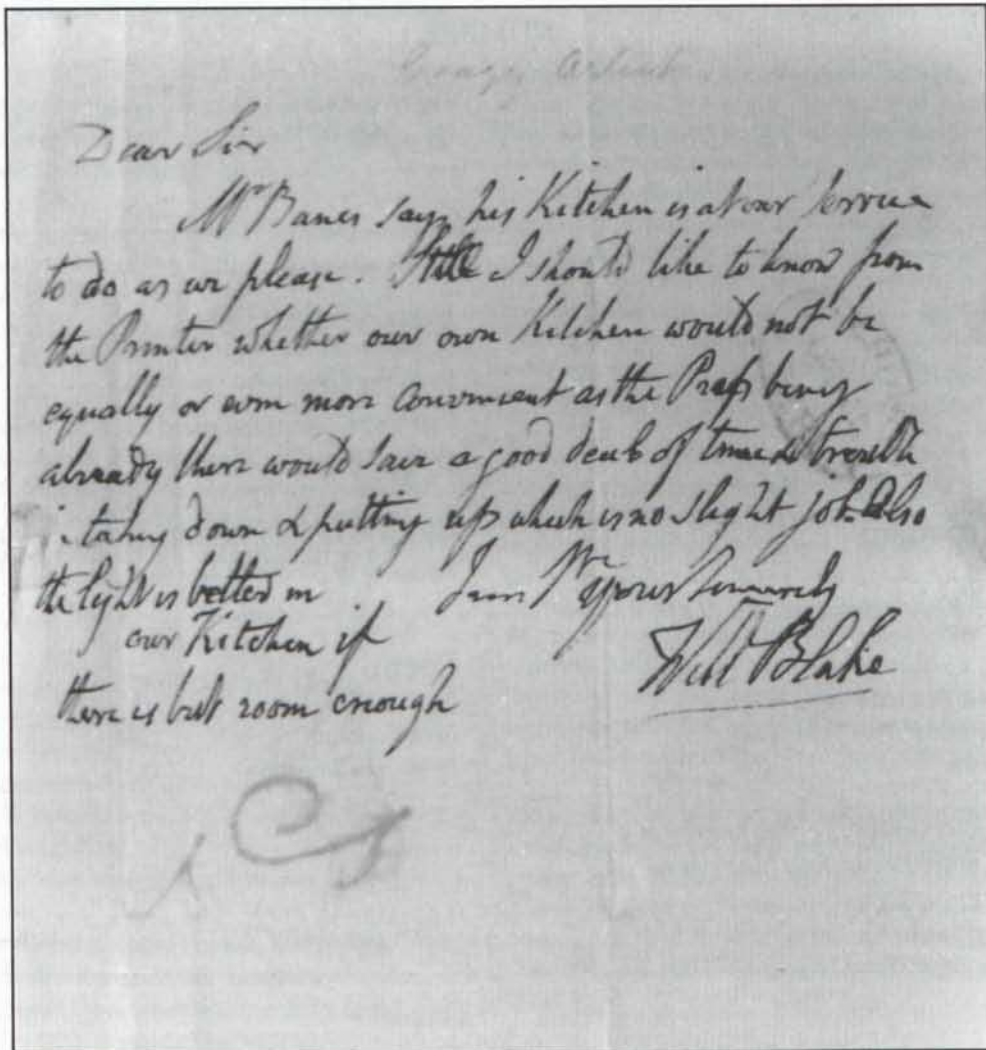 Dear Sir
Mr Banes says his Kitchen is at our Service
to do as we please. Still I should like to know from
the Printer whether our own Kitchen would not be
equally or even more convenient as the Press being
already there would save a good deal of time & trouble
in taking down & putting up which is no slight job. Also
the light is better in I am Yrs Yours Sincerely
our Kitchen if
Willm Blake
there is but room enough